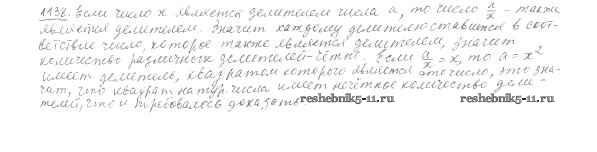 1138. Если число x является делителем числа a, то число a/x - также
является делителем. Значит каждому делителю ставится в соот-
ветствие число, которое также является делителем, значит
количество различных делителей - чётно. Если a/x = x, то a = x²
имеет делитель, квадратом которого является это число, это зна-
чит, что квадрат натур. числа имеет нечётное количество дели-
телей, что и требовалось доказать.
reshebnik5-11.ru reshebnik5-11.ru